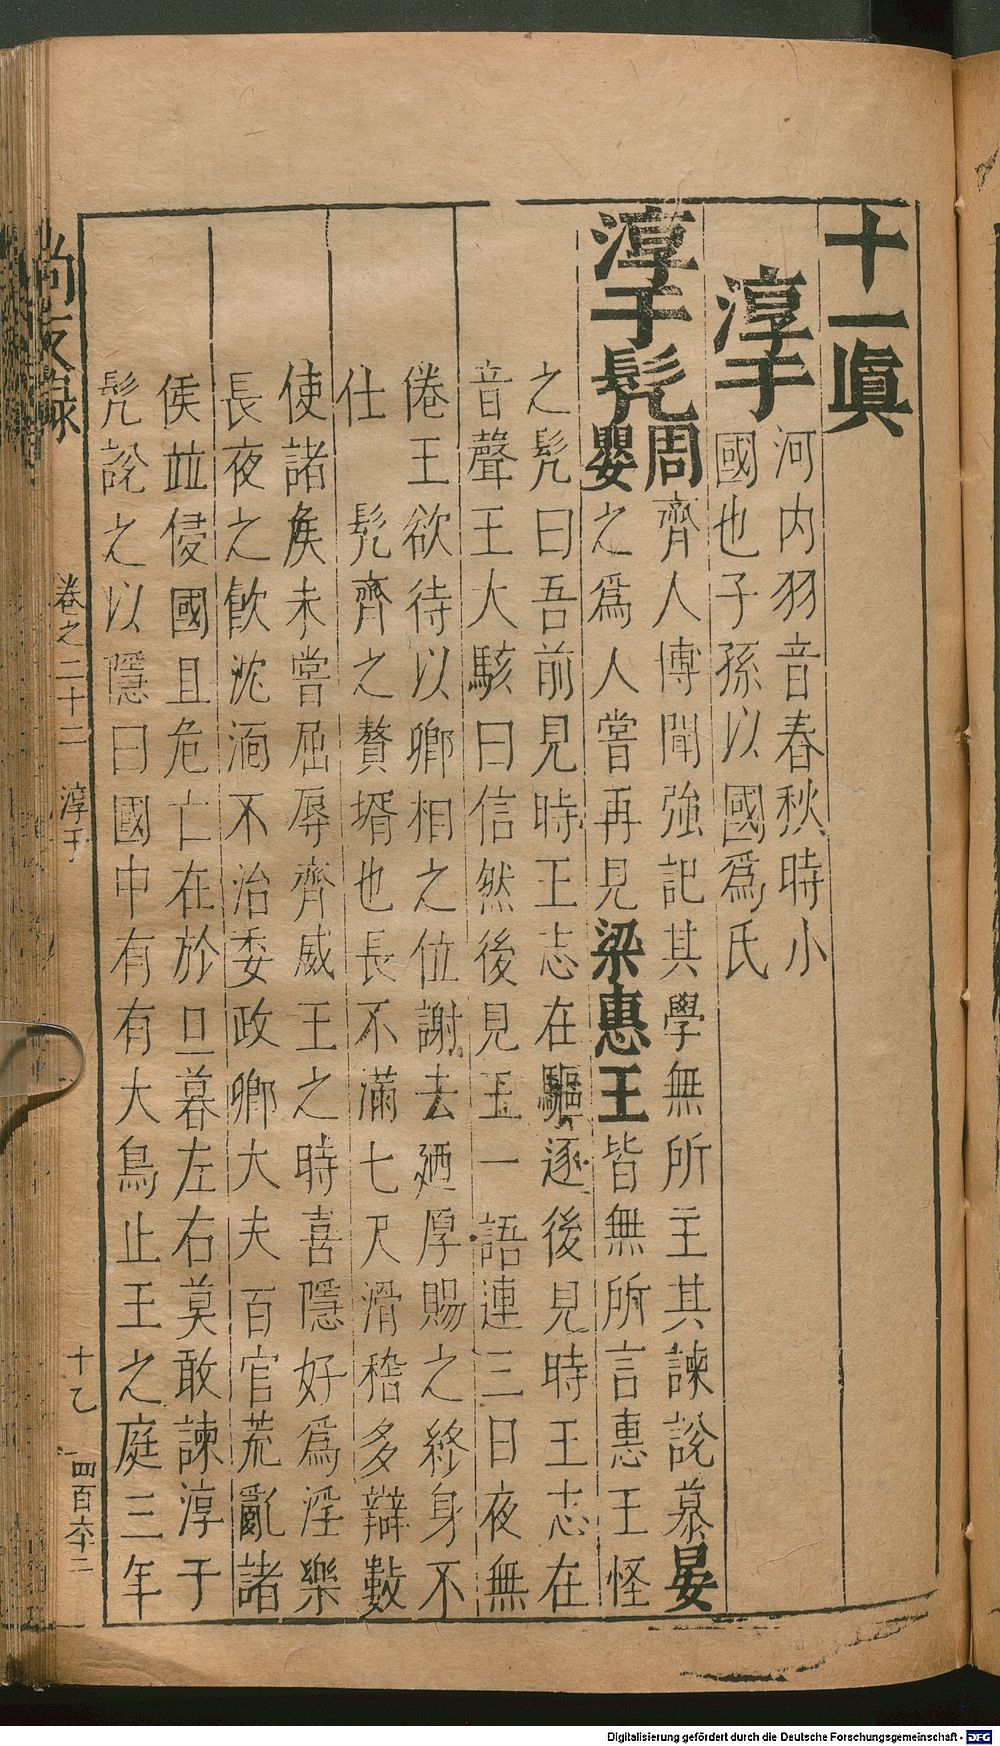 十一眞
淳于
河内羽音春秋時小
國也子孫以國爲氏
淳于髠
周齊人博聞強記其學無所主其諫說慕晏
嬰之爲人嘗再見梁惠王皆無所言惠王怪
之髠曰吾前見時王志在驅逐後見時王志在
音聲王大駭曰信然後見王一語連三日夜無
倦王欲待以卿相之位謝去廼厚賜之終身不
仕　髠齊之贅壻也長不滿七尺滑稽多辯數
使諸矦未嘗屈辱齊威王之時喜隱好爲淫樂
長夜之飮沈湎不治委政卿大夫百官荒亂諸
矦並侵國且危亡在於旦暮左右莫敢諫淳于
髠說之以隱曰國中有有大鳥止王之庭三年
尚友録
卷之二十二
淳于
十乙
四百六十二
Digitalisierung gefördert durch die Deutsche Forschungsgemeinschaft - DFG